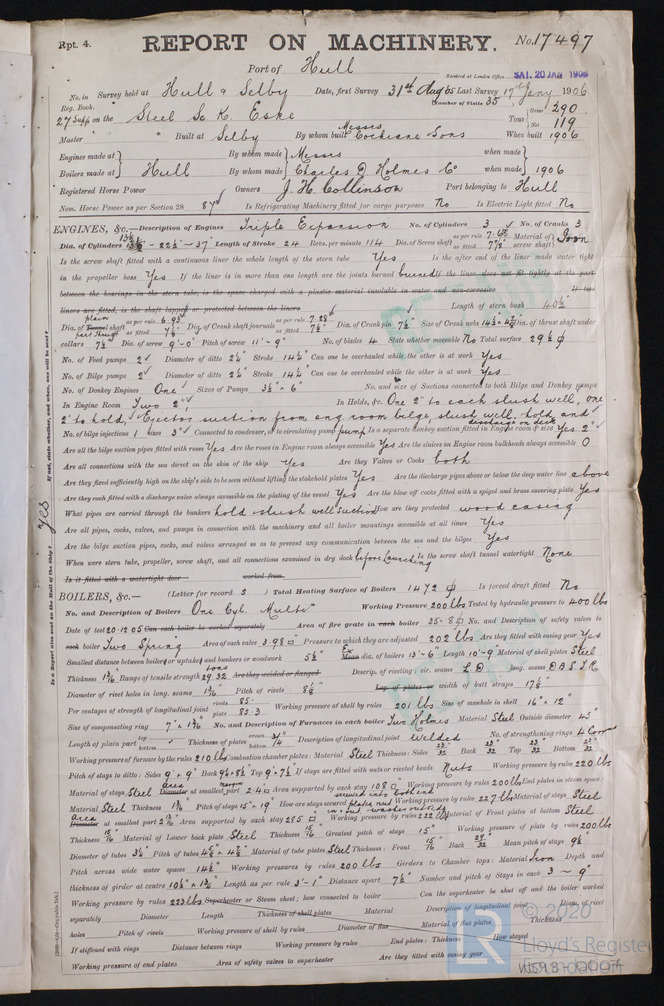 Rpt. 4.
REPORT ON MACHINERY. No. 17497
Port of Hull
Received at London Office SAT. 20 JAN 1906
No. in Survey held at Hull & Selby Date, first Survey 31st Aug 05 Last Survey 17th Jany 1906
Reg. Book. (Number of Visits 35)
27 Supp on the Steel Sc K. Eske Tons { Gross 290 Net 119
Master Built at Selby By whom built Messrs Cochrane & Sons When built 1906
Engines made at Hull By whom made Messrs Charles D. Holmes & Co when made 1906
Boilers made at Hull By whom made when made 1906
Registered Horse Power Owners J. H. Collinson Port belonging to Hull
Nom. Horse Power as per Section 28 87 Is Refrigerating Machinery fitted for cargo purposes No Is Electric Light fitted No
ENGINES, &c.—Description of Engines Triple Expansion No. of Cylinders 3 No. of Cranks 3
Dia. of Cylinders 22½ - 37 Length of Stroke 24 Revs. per minute 114 Dia. of Screw shaft as per rule 7.68 as fitted 7⅞" Material of screw shaft Iron
Is the screw shaft fitted with a continuous liner the whole length of the stern tube Yes Is the after end of the liner made water tight
in the propeller boss Yes If the liner is in more than one length are the joints burned burned If the liner does not fit tightly at the part
between the bearings in the stern tube, is the space charged with a plastic material insoluble in water and non-corrosive If two
liners are fitted, is the shaft lapped or protected between the liners Length of stern bush 40½"
Dia. of Tunnel shaft as per rule 6.93 as fitted 7½" Dia. of Crank shaft journals as per rule 7.28 as fitted 7½" Dia. of Crank pin 7½" Size of Crank webs Dia. of thrust shaft under
collars 7½" Dia. of screw 9'-0" Pitch of screw 11'-9" No. of blades 4 State whether moveable No Total surface 29½
No. of Feed pumps 2 Diameter of ditto 2½" Stroke 14½" Can one be overhauled while the other is at work Yes
No. of Bilge pumps 2 Diameter of ditto 2½" Stroke 14½" Can one be overhauled while the other is at work Yes
No. of Donkey Engines One Sizes of Pumps 3½" × 6" No. and size of Suctions connected to both Bilge and Donkey pumps
In Engine Room Two 2", In Holds, &c. One 2" to each slush well, one
2" to hold, Ejector suction from eng room bilge, slush well, hold, and discharge on deck
No. of bilge injections 1 sizes 3" Connected to condenser, or to circulating pump pump Is a separate donkey suction fitted in Engine room & size Yes 2"
Are all the bilge suction pipes fitted with roses Yes Are the roses in Engine room always accessible Yes Are the sluices on Engine room bulkheads always accessible 0
Are all connections with the sea direct on the skin of the ship Yes Are they Valves or Cocks both
Are they fixed sufficiently high on the ship's side to be seen without lifting the stokehold plates Yes Are the discharge pipes above or below the deep water line above
Are they each fitted with a discharge valve always accessible on the plating of the vessel Yes Are the blow off cocks fitted with a spigot and brass covering plate Yes
What pipes are carried through the bunkers hold & slush well suction How are they protected wood casing
Are all pipes, cocks, valves, and pumps in connection with the machinery and all boiler mountings accessible at all times Yes
Are the bilge suction pipes, cocks, and valves arranged so as to prevent any communication between the sea and the bilges Yes
When were stern tube, propeller, screw shaft, and all connections examined in dry dock before launching Is the screw shaft tunnel watertight None
Is it fitted with a watertight door worked from
BOILERS, &c.— (Letter for record S) Total Heating Surface of Boilers 1472 Is forced draft fitted No
No. and Description of Boilers One Cyl. Multr Working Pressure 200 lbs Tested by hydraulic pressure to 400 lbs
Date of test 20.12.05 Can each boiler be worked separately Area of fire grate in each boiler 35.8 No. and Description of safety valves to
each boiler Two Spring Area of each valve 3.98 Pressure to which they are adjusted 202 lbs Are they fitted with easing gear Yes
Smallest distance between boilers or uptakes and bunkers or woodwork 5½" Mean dia. of boilers 13'-6" Length 10'-9" Material of shell plates Steel
Thickness Range of tensile strength 29.32 Are they welded or flanged Descrip. of riveting: cir. seams L.D. long. seams D.B.S.T.R.
Diameter of rivet holes in long. seams Pitch of rivets 8⅛" Lap of plates or width of butt straps 17⅛"
Per centages of strength of longitudinal joint rivets 85 plate 82.3 Working pressure of shell by rules 201 lbs Size of manhole in shell 16" × 12"
Size of compensating ring No. and Description of Furnaces in each boiler Two Holmes Material Steel Outside diameter 45"
Length of plain part top bottom Thickness of plates crown bottom Description of longitudinal joint welded No. of strengthening rings
Working pressure of furnace by the rules 210 lbs Combustion chamber plates: Material Steel Thickness: Sides Back Top Bottom
Pitch of stays to ditto: Sides 9" × 9" Back Top 9" × 7½" If stays are fitted with nuts or riveted heads Nuts Working pressure by rules 220 lbs
Material of stays Steel Diameter at smallest part Area supported by each stay 108 Working pressure by rules 200 lbs End plates in steam space:
Material Steel Thickness Pitch of stays 15" × 19" How are stays secured Working pressure by rules 227 lbs Material of stays Steel
Diameter at smallest part Area supported by each stay 285 Working pressure by rules 222 lbs Material of Front plates at bottom Steel
Thickness Material of Lower back plate Steel Thickness Greatest pitch of stays 15" Working pressure of plate by rules 200 lbs
Diameter of tubes 3¼" Pitch of tubes Material of tube plates Steel Thickness: Front Back Mean pitch of stays 9¼"
Pitch across wide water spaces 14½" Working pressures by rules 200 lbs Girders to Chamber tops: Material Iron Depth and
thickness of girder at centre Length as per rule 3'-1" Distance apart 7½" Number and pitch of Stays in each 3 - 9"
Working pressure by rules 223 lbs Superheater or Steam chest; how connected to boiler Can the superheater be shut off and the boiler worked
separately Diameter Length Thickness of shell plates Material Description of longitudinal joint Diam. of rivet
holes Pitch of rivets Working pressure of shell by rules Diameter of flue Material of flue plates Thickness
If stiffened with rings Distance between rings Working pressure by rules End plates: Thickness How stayed
Working pressure of end plates Area of safety valves to superheater Are they fitted with easing gear
Is a Report also sent on the Hull of the Ship? Yes
If not, state whether, and when, one will be sent?
© 2020
Lloyd's Register
Foundation